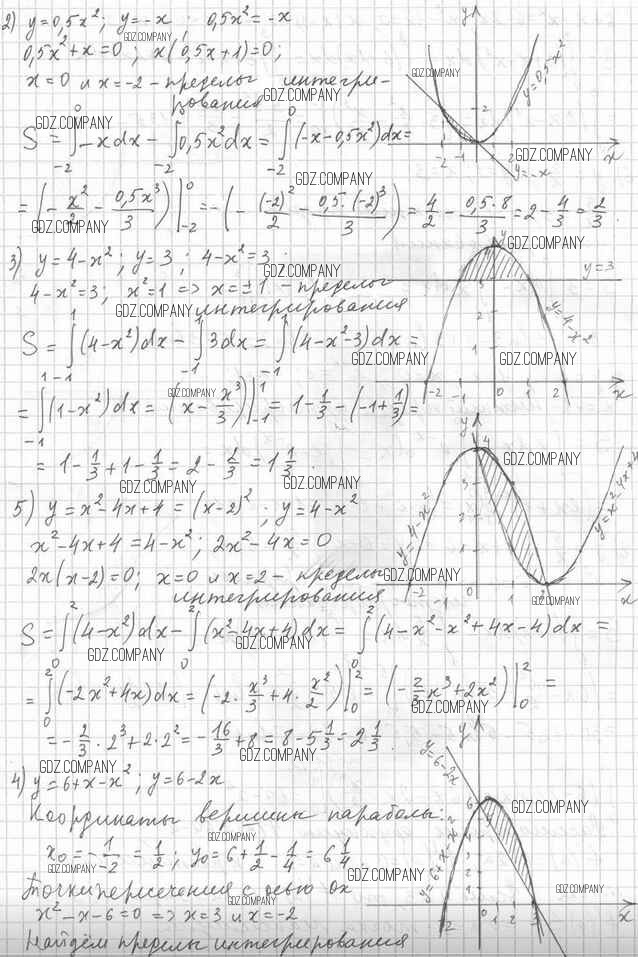 2) y=0,5x²; y=-x ; 0,5x²=-x
0,5x²+x=0 ; x(0,5x+1)=0;
x=0 и x=-2 - пределы интегри-
рования
S = ∫₋₂⁰ -xdx - ∫₋₂⁰ 0,5x²dx = ∫₋₂⁰ (-x-0,5x²)dx =
= (-x²/2 - 0,5x³/3)|₋₂⁰ = -(-(-2)²/2 - 0,5·(-2)³/3) = 4/2 - 0,5·8/3 = 2 - 4/3 = 2/3.
y=0,5x²
y=-x
3) y=4-x²; y=3 ; 4-x²=3
4-x²=3; x²=1 => x=±1 - пределы
интегрирования
S = ∫₋₁¹ (4-x²)dx - ∫₋₁¹ 3dx = ∫₋₁¹ (4-x²-3)dx =
= ∫₋₁¹ (1-x²)dx = (x - x³/3)|₋₁¹ = 1 - 1/3 - (-1+1/3) =
= 1 - 1/3 + 1 - 1/3 = 2 - 2/3 = 1 1/3.
y=3
y=4-x²
5) y=x²-4x+4=(x-2)²; y=4-x²
x²-4x+4=4-x²; 2x²-4x=0
2x(x-2)=0; x=0 и x=2 - пределы
интегрирования
S = ∫₀² (4-x²)dx - ∫₀² (x²-4x+4)dx = ∫₀² (4-x²-x²+4x-4)dx =
= ∫₀² (-2x²+4x)dx = (-2·x³/3 + 4·x²/2)|₀² = (-2/3x³+2x²)|₀² =
= -2/3·2³+2·2² = -16/3+8 = 8-5 1/3 = 2 1/3.
y=4-x²
y=x²-4x+4
4) y=6+x-x²; y=6-2x
Координаты вершины параболы:
x₀ = -1/-2 = 1/2; y₀ = 6+1/2-1/4 = 6 1/4
Точки пересечения с осью Ox
x²-x-6=0 => x=3 и x=-2
Найдём пределы интегрирования
y=6-2x
y=6+x-x²
GDZ.COMPANY